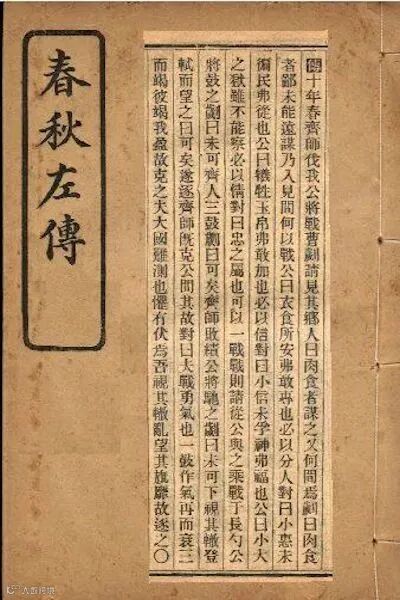 傳十年春齊師伐我公將戰曹劌請見其鄉人曰肉食者謀之又何間焉劌曰肉食
者鄙未能遠謀乃入見問何以戰公曰衣食所安弗敢專也必以分人對曰小惠未
徧民弗從也公曰犧牲玉帛弗敢加也必以信對曰小信未孚神弗福也公曰小大
之獄雖不能察必以情對曰忠之屬也可以一戰戰則請從公與之乘戰于長勺公
將鼓之劌曰未可齊人三鼓劌曰可矣齊師敗績公將馳之劌曰未可下視其轍登
軾而望之曰可矣遂逐齊師既克公問其故對曰夫戰勇氣也一鼓作氣再而衰三
而竭彼竭我盈故克之夫大國難測也懼有伏焉吾視其轍亂望其旗靡故逐之〇
春秋左傳